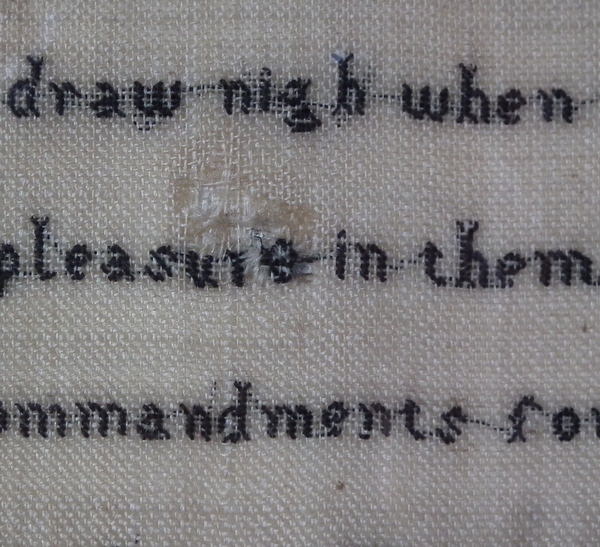 draw nigh when
pleasure in them.
ommandments for